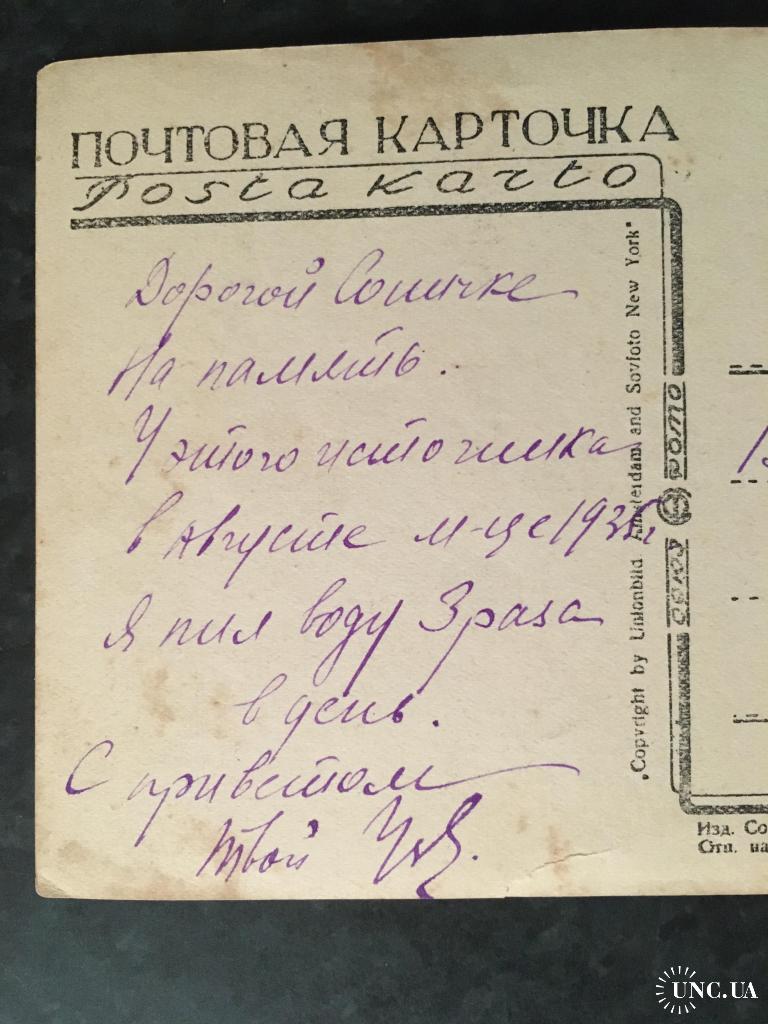 ПОЧТОВАЯ КАРТОЧКА
Posta karto
Дорогой Соничке
На память.
У этого источника
в августе м-це 193
Я пил воду 3 раза
в день.
С приветом
твой
"Copyright by Unionbild Amsterdam and Sovfoto New York"
Изд. Со
Отп. на
UNC.UA